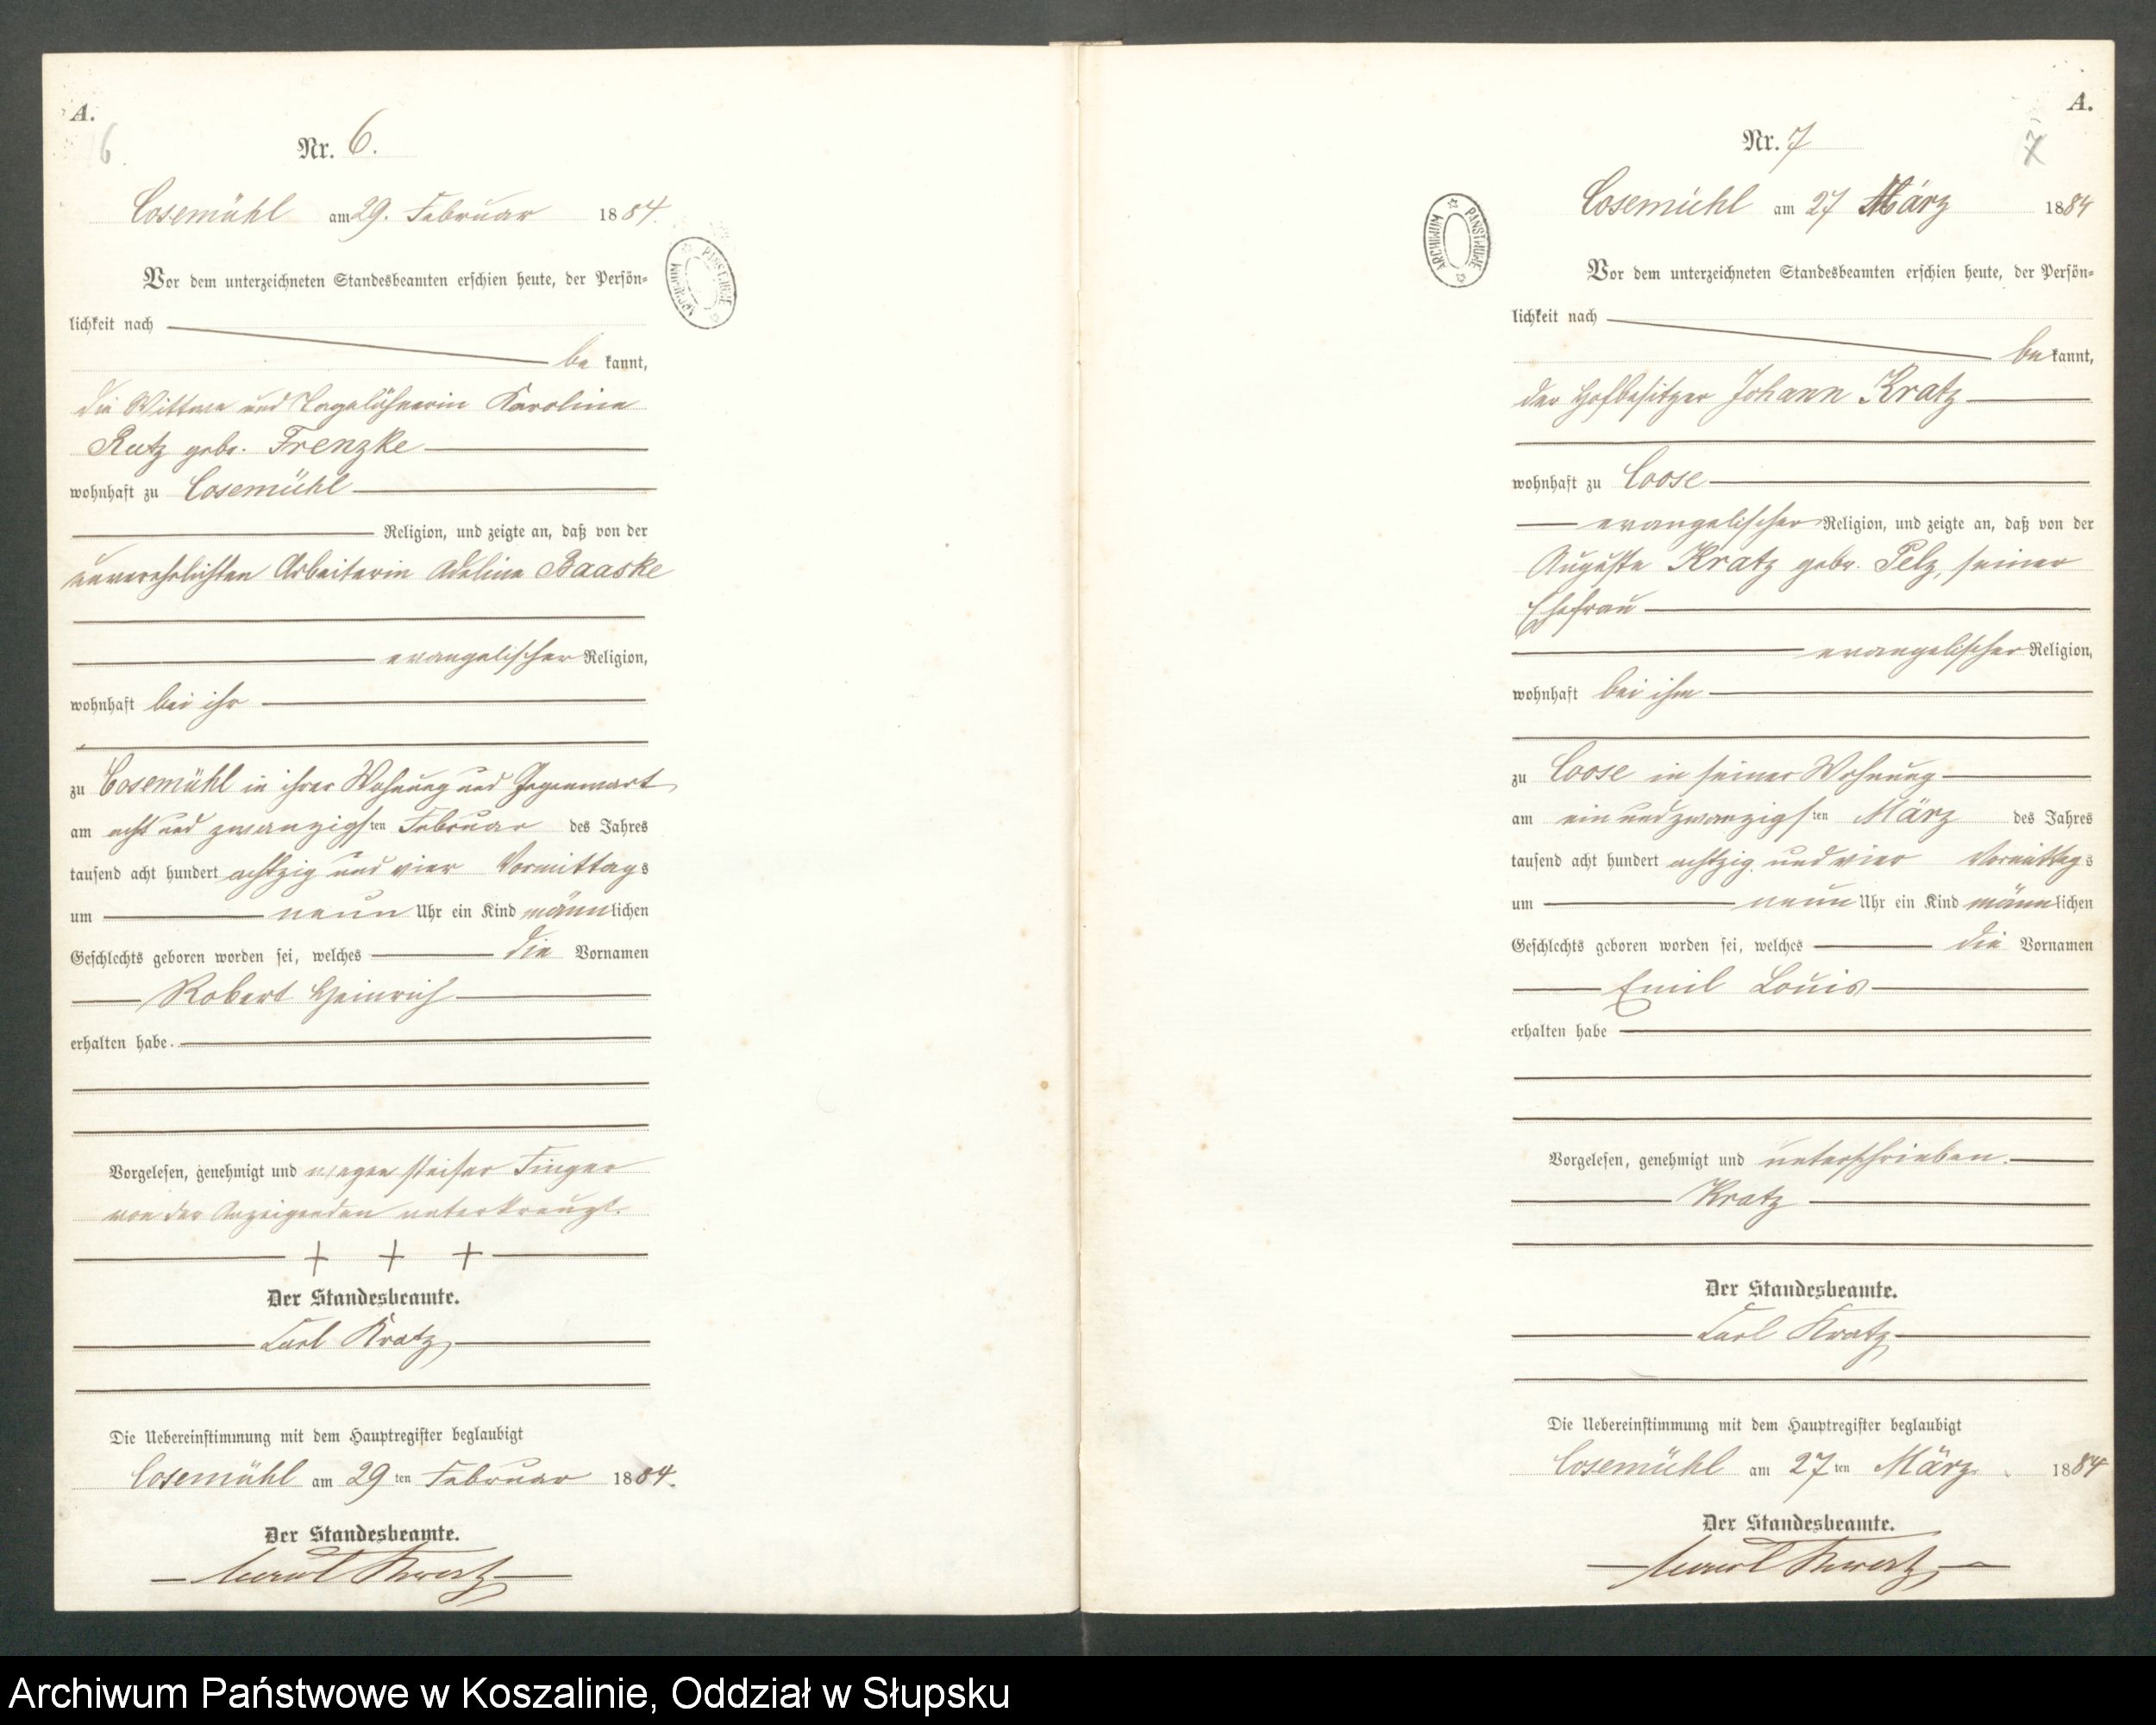 A.
6.
Nr. 6.
Cosemühl am 29. Februar 1884.
Vor dem unterzeichneten Standesbeamten erschien heute, der Persön=
lichkeit nach
be kannt,
die Wittwe und Tagelöhnerin Karoline
Rutz gebr. Frenzke
wohnhaft zu Cosemühl
Religion, und zeigte an, daß von der
unverehelichten Arbeiterin Adeline Baaske
evangelischer Religion,
wohnhaft bei ihr
zu Cosemühl in ihrer Wohnung und Gegenwart
am acht und zwanzigsten Februar des Jahres
tausend acht hundert achtzig und vier Vormittags
um neun Uhr ein Kind männlichen
Geschlechts geboren worden sei, welches die Vornamen
Robert Heinrich
erhalten habe.
Vorgelesen, genehmigt und wegen steifer Finger
von der Anzeigenden unterkreuzt.
+ + +
Der Standesbeamte.
Carl Kratz
Die Uebereinstimmung mit dem Hauptregister beglaubigt
Cosemühl am 29ten Februar 1884.
Der Standesbeamte.
ARCHIWUM PAŃSTWOWE
A.
7
Nr. 7
Cosemühl am 27 März 1884
Vor dem unterzeichneten Standesbeamten erschien heute, der Persön=
lichkeit nach
be kannt,
der Hofbesitzer Johann Kratz
wohnhaft zu Coose
evangelischer Religion, und zeigte an, daß von der
Auguste Kratz gebr. Pelz, seiner
Ehefrau
evangelischer Religion,
wohnhaft bei ihm
zu Coose in seiner Wohnung
am ein und zwanzigsten März des Jahres
tausend acht hundert achtzig und vier Vormittags
um neun Uhr ein Kind männlichen
Geschlechts geboren worden sei, welches die Vornamen
Emil Louis
erhalten habe
Vorgelesen, genehmigt und unterschrieben.
Kratz
Der Standesbeamte.
Carl Kratz
Die Uebereinstimmung mit dem Hauptregister beglaubigt
Cosemühl am 27ten März 1884
Der Standesbeamte.
ARCHIWUM PAŃSTWOWE
Archiwum Państwowe w Koszalinie, Oddział w Słupsku